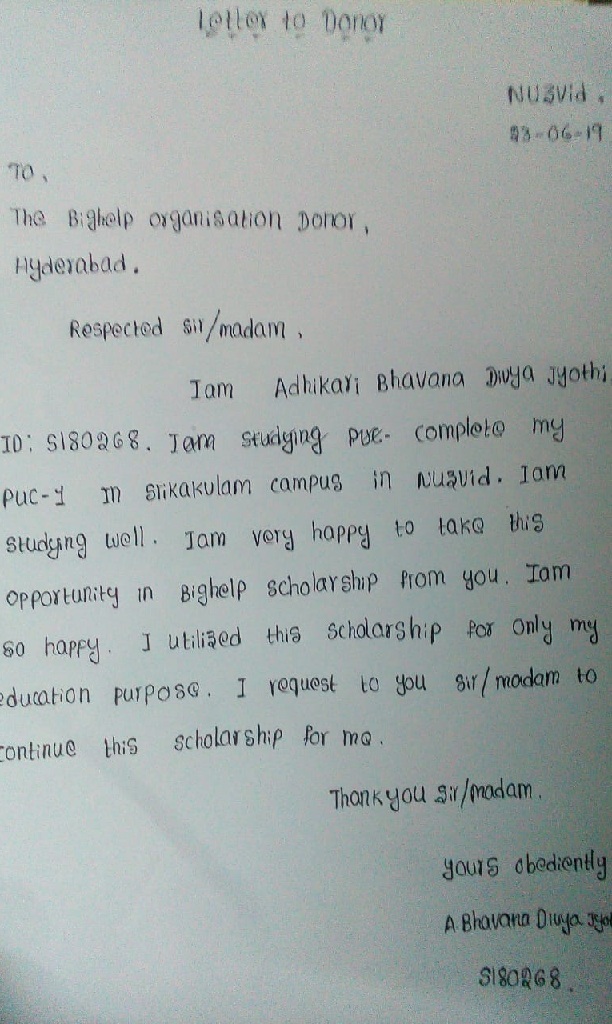 Letter to Donor
Nuzvid.
23-06-19
To,
The Bighelp organisation Donor,
Hyderabad.
Respected sir/madam,
Iam Adhikari Bhavana Divya Jyothi
ID: S180268. Iam studying puc- complete my
puc-1 in srikakulam campus in Nuzvid. Iam
studying well. Iam very happy to take this
opportunity in Bighelp scholarship from you. Iam
so happy. I utilized this scholarship for only my
education purpose. I request to you sir/madam to
continue this scholarship for me.
Thankyou sir/madam.
yours obediently
A. Bhavana Divya Jyo
S180268.